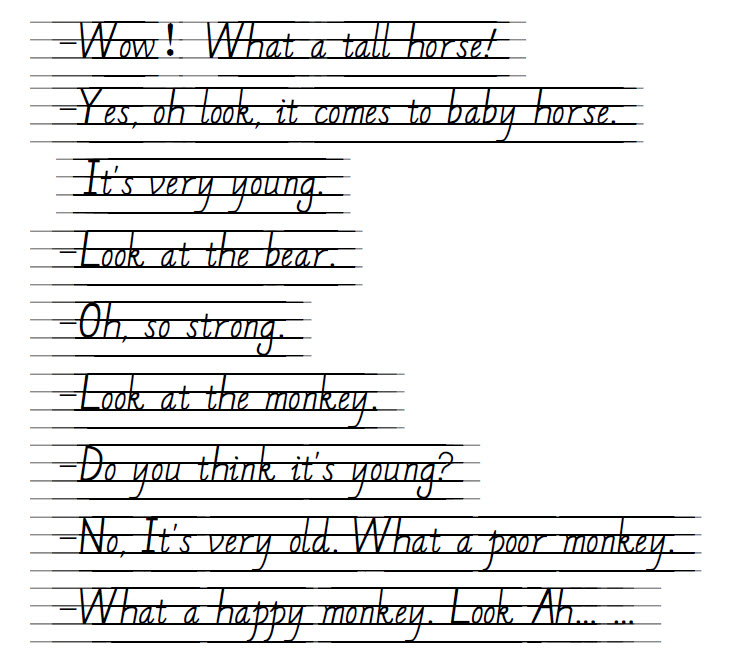 –Wow! What a tall horse!
–Yes, oh look, it comes to baby horse.
It's very young.
–Look at the bear.
–Oh, so strong.
–Look at the monkey.
–Do you think it's young?
–No, It's very old. What a poor monkey.
–What a happy monkey. Look Ah... ...